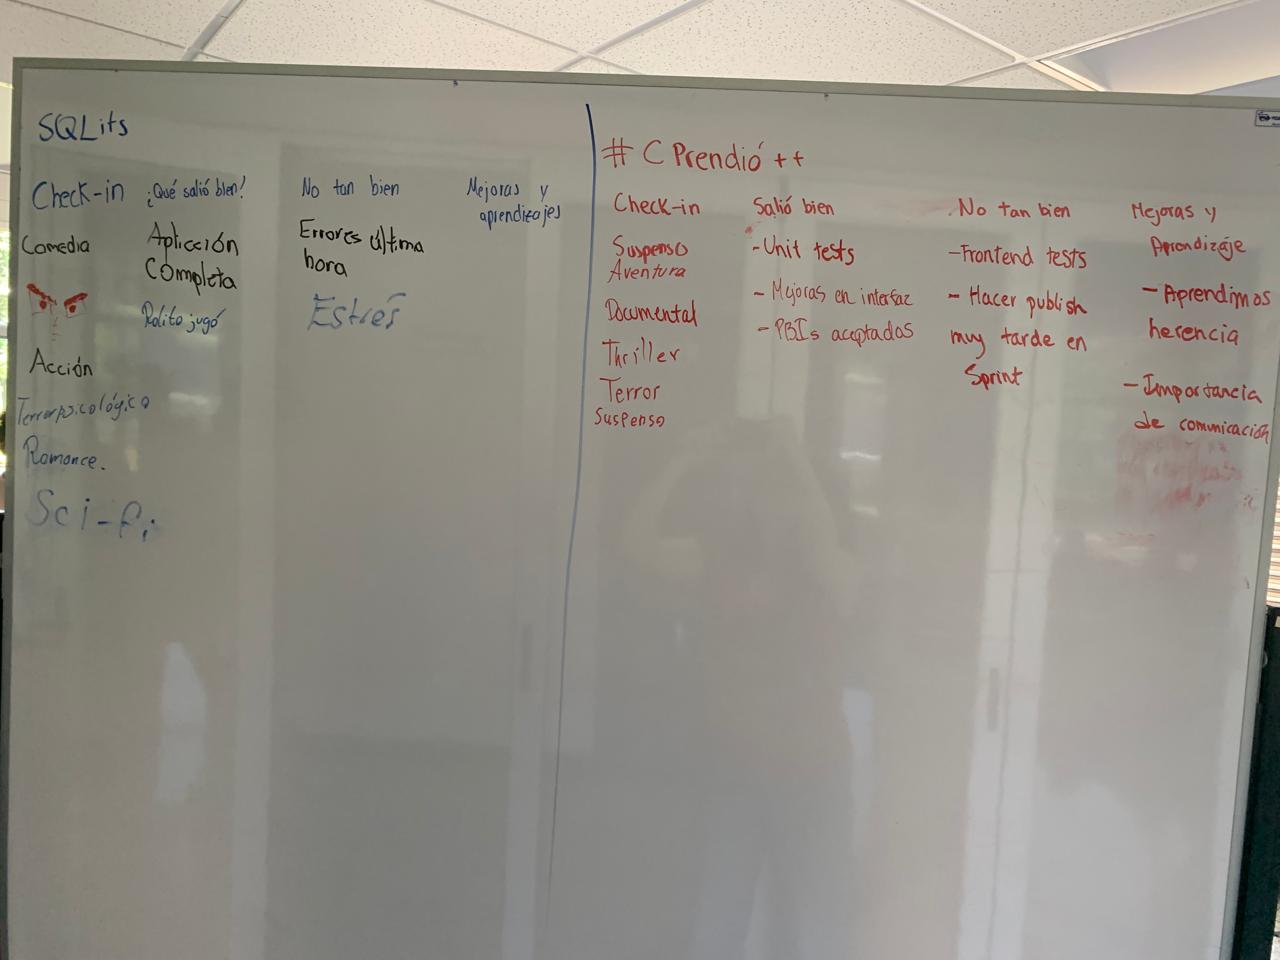 SQLits
Check-in
Comedia
Acción
Terror psicológico
Romance.
Sci-fi
¿Qué salió bien?
Aplicación
Completa
jugó
No tan bien
Errores última
hora
Estrés
Mejoras y
aprendizajes
# C Prendió ++
Check-in
Suspenso
Aventura
Documental
Thriller
Terror
Suspenso
Salió bien
- Unit tests
- Mejoras en interfaz
- PBIs aceptados
No tan bien
- Frontend tests
- Hacer publish
muy tarde en
Sprint
Mejoras y
Aprendizaje
- Aprendimos
herencia
- Importancia
de comunicación